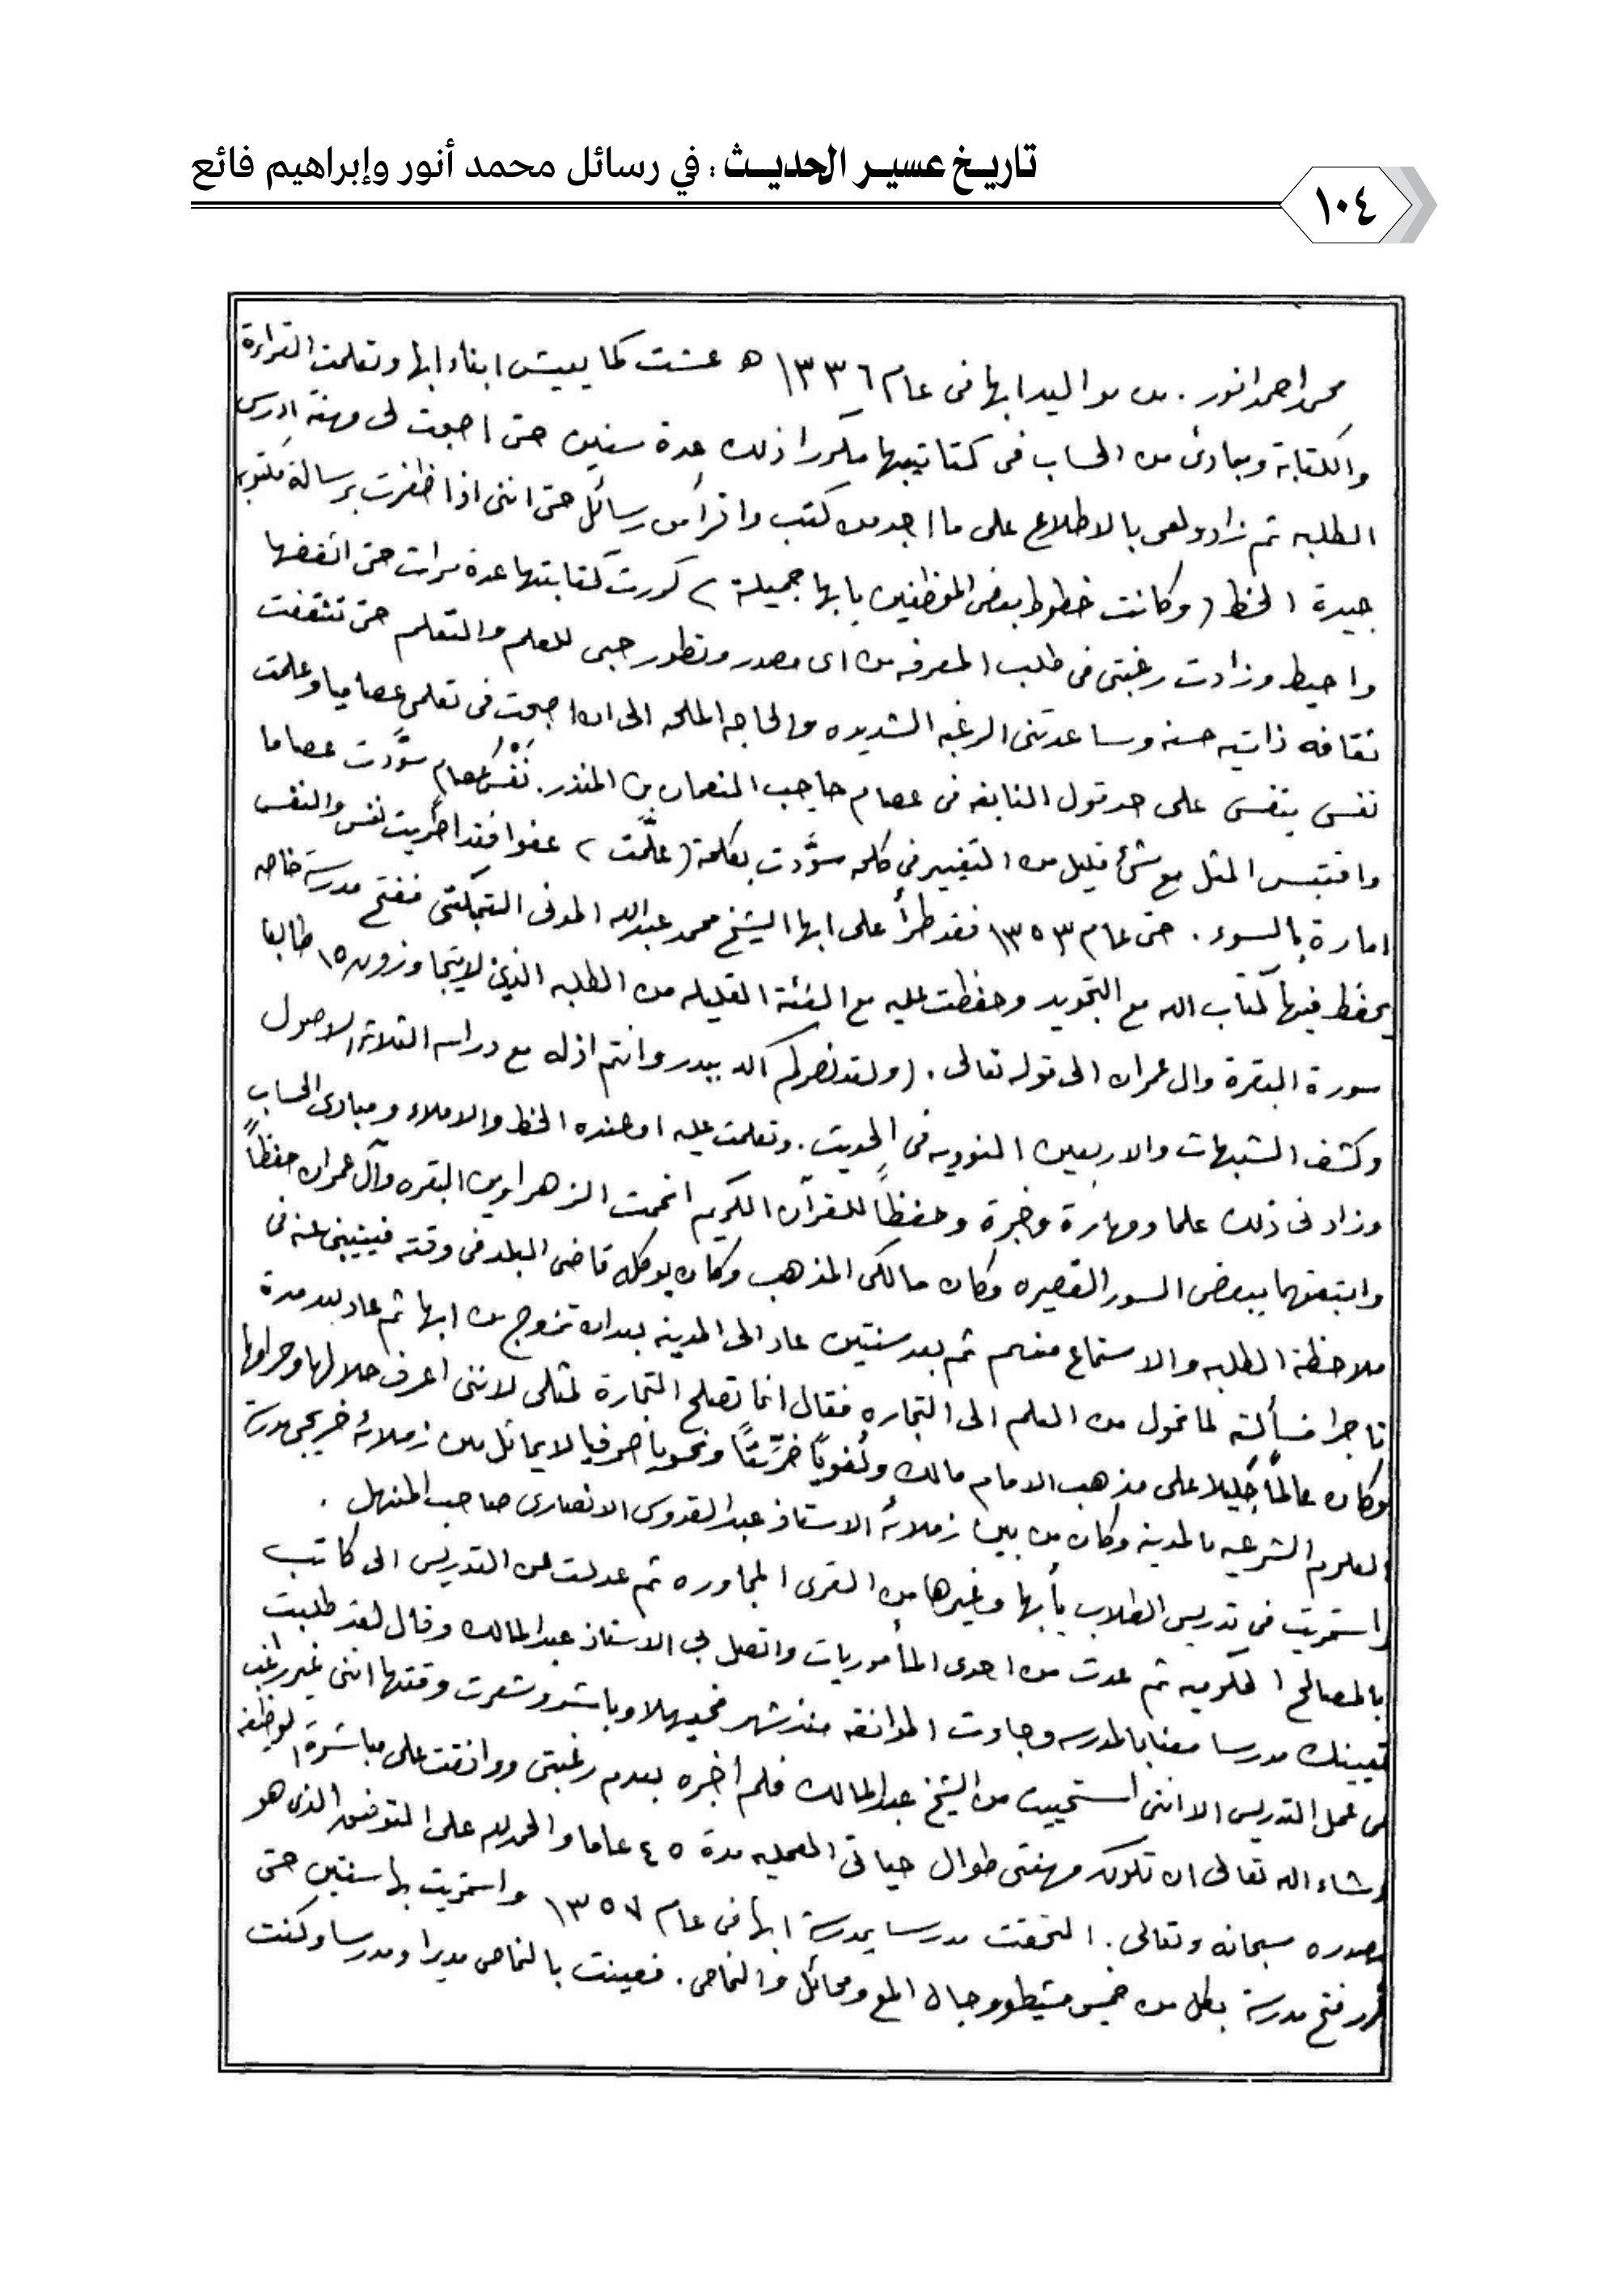 تاريخ عسير الحديث : في رسائل محمد أنور وإبراهيم فائع
١٠٤
محمد احمد انور . من مواليد ابها فى عام ١٣٣٦ هـ عشت كما يعيش ابناء ابها وتعلمت القراءة
والكتابة ومبادئ من الحساب فى كتاتيبها مكررا ذلك عدة سنين حتى اصبحت لى مهنة ادرس
الطلبه ثم زاد ولعى بالاطلاع على ما اجد من كتب واقرأ من رسائل حتى اننى اذا ظفرت برسالة مكتوبه
جيدة الخط ( وكانت خطوط بعض الموظفين بابها جميلة ) كررت كتابتها عدة مرات حتى اتقنها
واحيط وزادت رغبتى فى طلب المعرفه من اى مصدر وتطور حبى للعلم والتعلم حتى تثقفت
ثقافه ذاتيه حسنه وساعدتنى الرغبه الشديده والحاجه الملحه الى ان اصبحت فى تعلمى عصاميا وعلمت
نفسى بنفسى على حد قول النابغه فى عصام حاجب النعمان بن المنذر . نَفْسُ عصامٍ سوَّدت عصاما
واقتبس المثل مع شئ قليل من التغيير فى كلمه سوَّدت بكلمة ( علَّمت ) عفوا فقد اطريت نفسى والنفس
امارة بالسوء . حتى عام ١٣٥٣ فقد طرأ على ابها الشيخ محمد عبدالله المدنى التنبكتى ففتح مدرسة خاصه
يحفظ فيها كتاب الله مع التجويد وحفظت عليه مع الفئة القليله من الطلبه الذين لا يتجاوزون ١٥ طالبا
سورة البقرة وال عمران الى قوله تعالى . ( ولقد نصركم الله ببدر وانتم اذله مع دراسه الثلاثة الاصول
وكشف الشبهات والاربعين النوويه فى الحديث . وتعلمت عليه او عنده الخط والاملاء ومبادئ الحساب
وزاد فى ذلك علما ومهارة وخبرة وحفظاً للقرآن الكريم اتممت الزهراوين البقره وآل عمران حفظاً
واتبعتهما ببعض السور القصيره وكان مالكى المذهب وكان يوكله قاضى البلد فى وقته فينيبنى عنه فى
ملاحظة الطلبه والاستماع منهم ثم بعد سنتين عاد الى المدينه بعد ان تزوج من ابها ثم عاد بعد مدة
تاجرا فسألته لما تحول من العلم الى التجاره فقال انما تصلح التجارة لمثلى لاننى اعرف حلالها وحرامها
وكان عالماً جليلا على مذهب الامام مالك ولُغويًا خرّيتًا ونحويا صرفيا لا يماثل من زملائه خريجى مدرسة
العلوم الشرعيه بالمدينه وكان من بين زملائه الاستاذ عبدالقدوس الانصارى صاحب المنهل .
استمريت فى تدريس الطلاب بأبها وغيرها من القرى المجاوره ثم عدلت عن التدريس الى كاتب
بالمصالح الحكوميه ثم عدت من احدى المأموريات واتصل بى الاستاذ عبدالمالك وقال لقد طلبت
تعيينك مدرسا معنا بالمدرسه وجاءت الموافقه منذ شهر فحيهلا وباشر وشعرت وقتها اننى غير راغب
فى عمل التدريس الا اننى استحييت من الشيخ عبدالمالك فلم اخبره بعدم رغبتى ووافقت على مباشرة الوظيفه
وشاء الله تعالى ان تكون مهنتى طوال حياتى العمليه مدة ٤٥ عاما والحمد لله على التوفيق الذى هو
مصدره سبحانه وتعالى . التحقت مدرسا بمدرسة ابها فى عام ١٣٥٧ واستمريت بها سنتين حتى
قرر فتح مدرسة بكل من خميس مشيط ورجال المع ومحائل والنماص . فعينت بالنماص مديرا ومدرسا وكنت